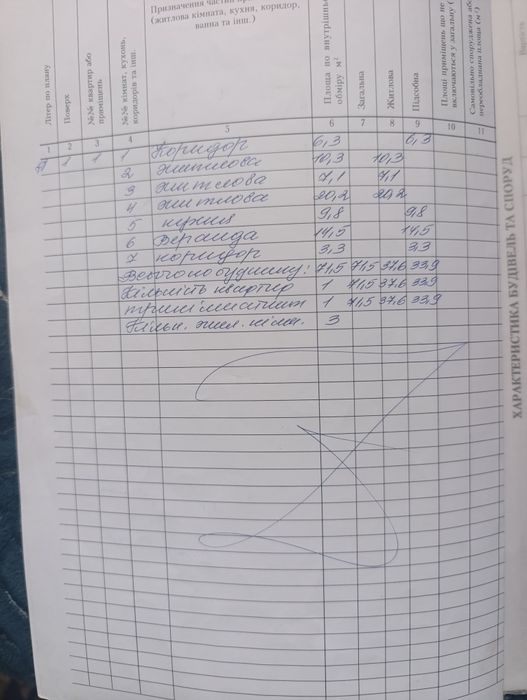 Літер по плану
Поверх
№№ квартир або приміщень
№№ кімнат, кухонь, коридорів та інш.
Призначення частин
(житлова кімната, кухня, коридор, ванна та інш.)
Площа по внутрішньому обміру м²
Загальна
Житлова
Підсобна
Площі приміщень що не включаються у загальну (
Самовільно споруджена або переобладнана площа (м²)
1 2 3 4 5 6 7 8 9 10 11
1 1 1 Коридор 6,3 6,3
2 житлова 10,3 10,3
3 житлова 7,1 7,1
4 житлова 20,2 20,2
5 кухня 9,8 9,8
6 Веранда 14,5 14,5
7 коридор 3,3 3,3
Всього по будинку: 71,5 71,5 37,6 33,9
Кількість квартир 1 71,5 37,6 33,9
трикімнатних 1 71,5 37,6 33,9
Кільк. жил. кімн. 3
ХАРАКТЕРИСТИКА БУДІВЕЛЬ ТА СПОРУД